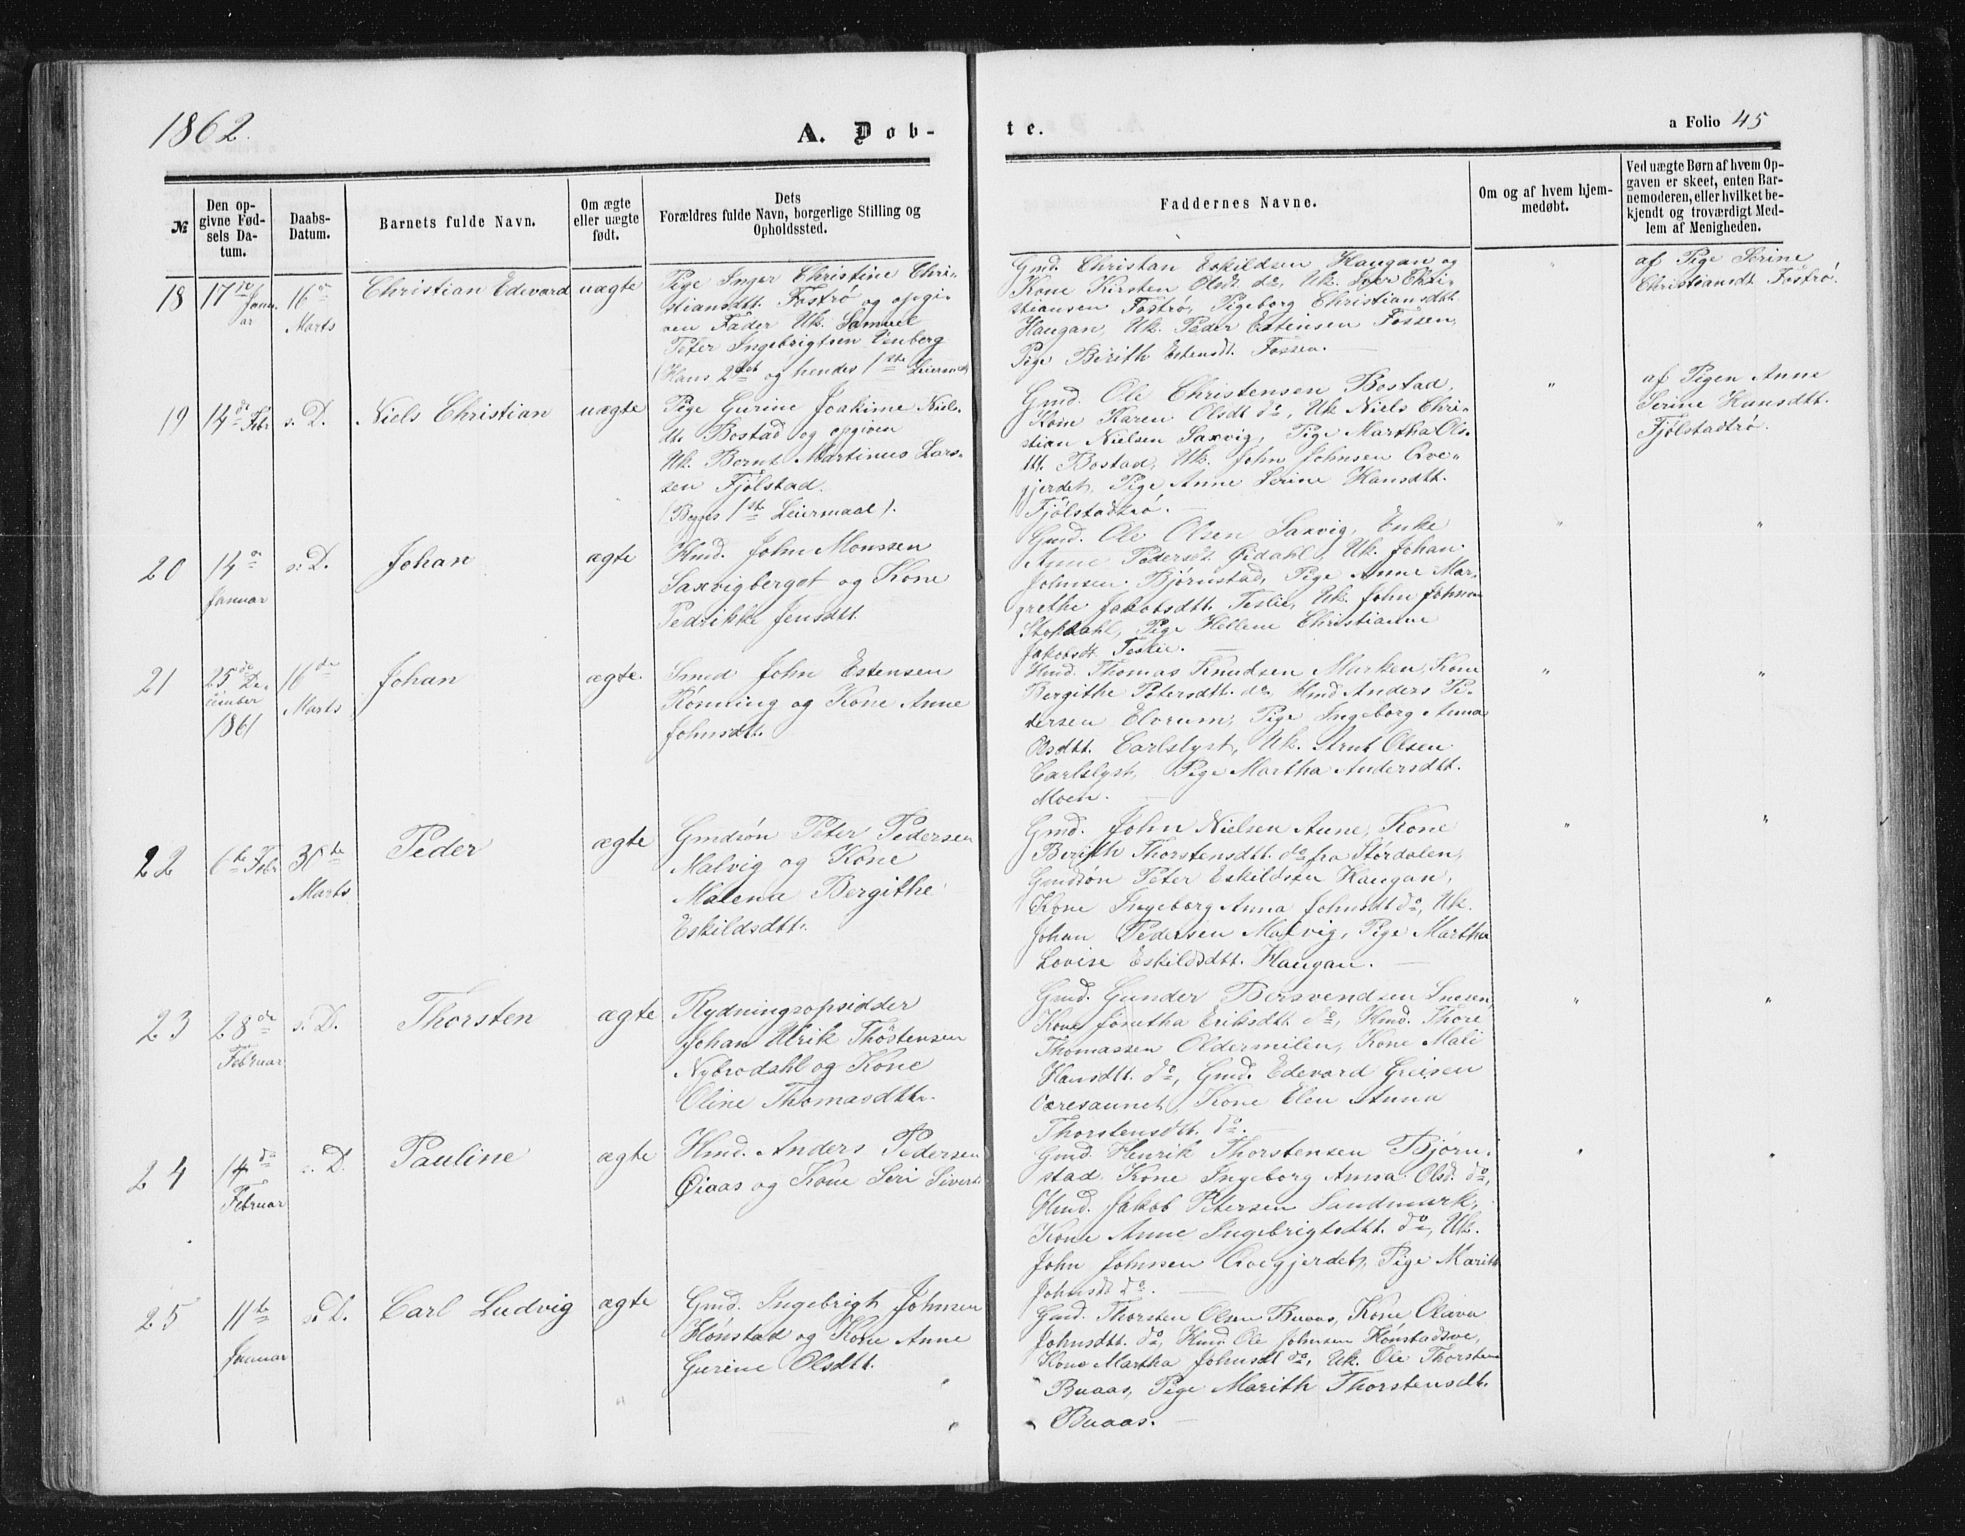 1862.
A. Døb-
te.
a Folio 45
№
Den op-
givne Fød-
sels Da-
tum.
Daabs-
Datum.
Barnets fulde Navn.
Om ægte
eller uægte
født.
Dets
Forældres fulde Navn, borgerlige Stilling og
Opholdssted.
Faddernes Navne.
Om og af hvem hjem-
medøbt.
Ved uægte Børn af hvem Op-
gaven er skeet, enten Bar-
nemoderen, eller hvilket be-
kjendt og troværdigt Med-
lem af Menigheden.
18
17de Janu-
ar
16de
Marts
Christian Edevard
uægte
Pige Inger Christine Chri-
stiansdtt. Fostrø og opgi-
ven Fader Uk. Samuel
Peter Ingebrigtsen Venberg
(Hans 2det og hendes 1ste Leiermaal
Gmd. Christan Eskildsen Haugan og
Kone Kirsten Olsdt do, Uk. Iver Chri-
stiansen Fostrø, Pigeborg Christiansdtt.
Haugan, Uk. Peder Estensen Fossen,
Pige Birith Estensdt. Fossen.
"
af Pige Serine
Christiansdt Fostrø.
19
14de Febr
s. D.
Niels Christian
uægte
Pige Gurine Joakime Niels-
tt. Bostad og opgiven
Uk. Bernt Martinus Lars-
sen Fjölstad.
(Begges 1ste Leiermaal).
Gmd. Ole Christensen Bostad,
Kone Karen Olsdt do, Uk Niels Chri-
stian Nielsen Saxvig, Pige Martha Ols-
tt. Bostad, Uk. John Johnsen Qve-
gjerdet, Pige Anne Serine Hansdtt.
Fjölstadtrø.
"
af Pigen Anne
Serine Hansdtt.
Fjölstadtrø.
20
14de
Januar
s. D.
Johan
ægte
Hmd. John Monssen
Saxvigberget og Kone
Pedrikke Jensdtt.
Gmd. Ole Olsen Saxvig, Enke
Anne Pedersdt. Øidahl, Uk. Johan
Johnsen Bjørnstad, Pige Anne Mar-
grethe Jakobsdtt. Teslie, Uk. John Johnsen
Stokdahl, Pige Hellene Christianne
Jakobsdt Teslie.
"
"
21
25de De-
cember
1861
16de
Marts
Johan
ægte.
Smed John Estensen
Rømling og Kone Anne
Johnsdtt.
Hmd. Thomas Knudsen Marken, Kone
Bergithe Petersdtt. do, Hmd Anders Pe-
dersen Elvrum, Pige Ingeborg Anna
Olsdtt. Carlslyst, Uk. Arnt Olsen
Carlslyst, Pige Martha Andersdtt.
Moen.
"
"
22
6te Febr
30te
Marts
Peder
ægte
Gmdsön Peter Pedersen
Malvig og Kone
Malena Bergithe
Eskildsdtt.
Gmd. John Nielsen Aune, Kone
Birith Thorstensdtt. do fra Stördalen,
Gmdsön Peter Eskildsen Haugan,
Kone Ingeborg Anna Johnsdt do, Uk.
Johan Pedersen Malvig, Pige Martha
Lovise Eskildsdtt. Haugan.
"
"
23
28de
Februar
s. D.
Thorsten
ægte
Rydningsopsidder
Johan Ulrik Thöstensen
Nybrodahl og Kone
Oline Thomasdtt.
Gmd. Gunder Bersvendsen Snesen,
Kone Jonetha Eriksdtt. do, Hmd. Thore
Thomassen Oldermelen, Kone Mali
Hansdtt. do, Gmd. Edevard Greisen
Væresaunet, Kone Elen Anna
Thorstensdtt. do.
"
"
24
14de
Februar
s. D.
Pauline
ægte
Hmd. Anders Pedersen
Øiaas og Kone Seri Siverts
Gmd. Henrik Thorstensen Bjørn-
stad Kone Ingeborg Anna Olsd. do,
Hmd. Jakob Petersen Sandmark,
Kone Anne Ingebrigtsdtt. do, Uk.
John Johnssen Qvegjerdet, Pige Marith
Johnsdt do.
"
"
25
11te
Januar
s. D.
Carl Ludvig
ægte
Gmd. Ingebrigt Johnsen
Hönstad og Kone Anne
Gurine Olsdtt.
Gmd. Thorsten Olsen Buaas, Kone Olava
Johnsdtt. do, Hmd Ole Johnsen Hönstadsve,
Kone Martha Johnsdt do, Uk. Ole Thorstens
Buaas, Pige Marith Thorstensdt.
Buaas.